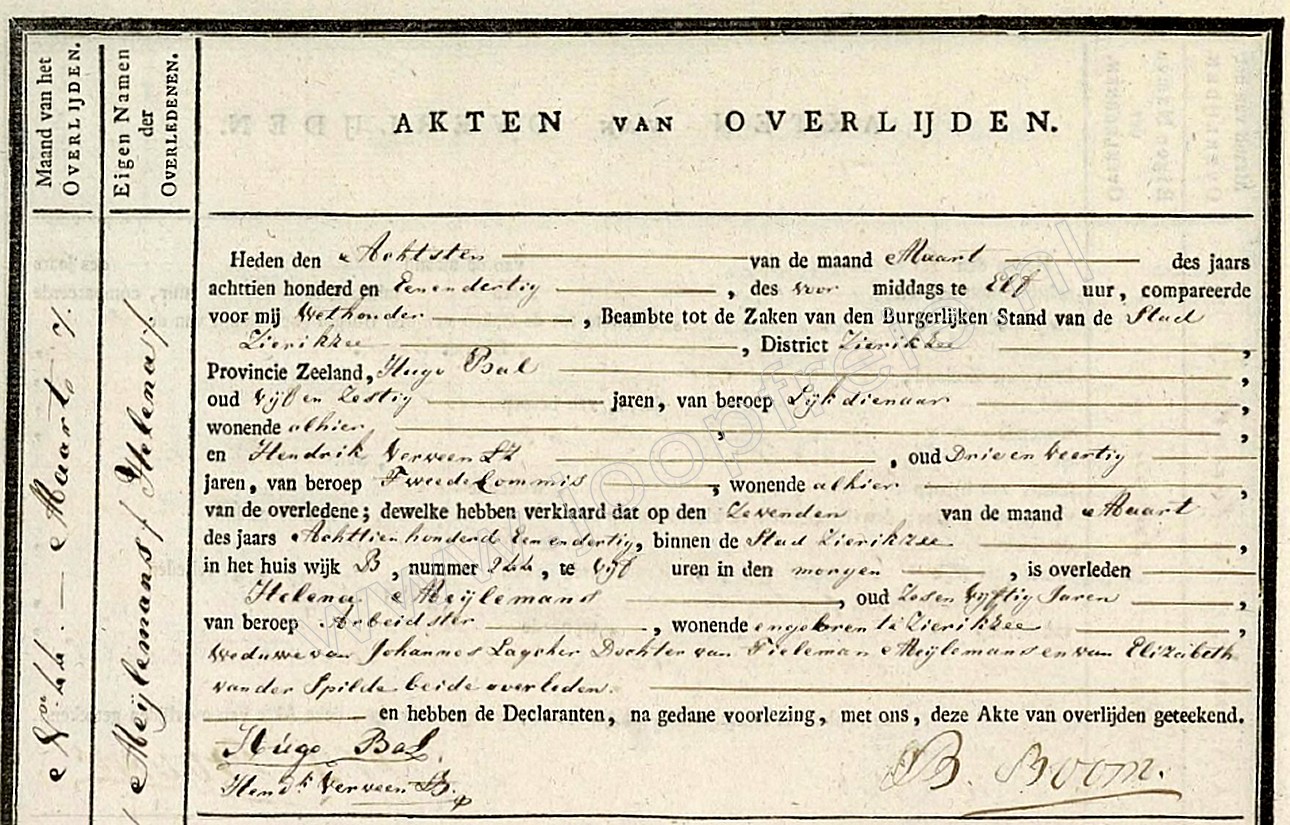 Maand van het
OVERLIJDEN.
Eigen Namen
der
OVERLEDENEN.
AKTEN VAN OVERLIJDEN.
Maart
Meijlemans Helena
Heden den Achtsten van de maand Maart des jaars
achttien honderd en Eenendertig, des voor middags te Elf uur, compareerde
voor mij Wethouder, Beambte tot de Zaken van den Burgerlijken Stand van de Stad
Zierikzee, District Zierikzee,
Provincie Zeeland, Hugo Bal,
oud Vijf en Zestig jaren, van beroep Lijkdienaar,
wonende alhier,,
en Hendrik Verveen, oud Drie en Veertig
jaren, van beroep Tweede Commis, wonende alhier,
van de overledene; dewelke hebben verklaard dat op den Zevenden van de maand Maart
des jaars Achttien honderd Eenendertig, binnen de Stad Zierikzee,
in het huis wijk B, nummer, te Vijf uren in den morgen, is overleden
Helena Meijlemans, oud Zes en Vijftig Jaren,
van beroep Arbeidster, wonende en geboren te Zierikzee,
Weduwe van Johannes Lagcher Dochter van Tieleman Meijlemans en van Elizabeth
van der Spilde beide overleden.
en hebben de Declaranten, na gedane voorlezing, met ons, deze Akte van overlijden geteekend.
Hugo Bal
Hendk Verveen
B. Boom.
www.joopfrep.nl